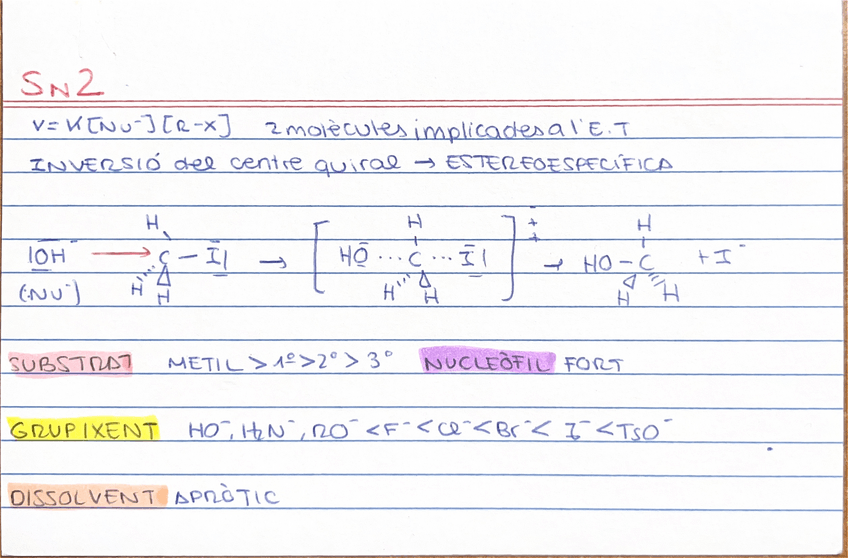 SN2
V=K[Nu⁻][R-X] 2 molècules implicades a l'E.T
INVERSIÓ del centre quiral → ESTEREOESPECÍFICA
H H ‡ H
|OH⁻ → C – I| → [ HO ··· C ··· I| ] → HO – C + I⁻
(:NU⁻) H H H H H H
SUBSTRAT METIL > 1º > 2º > 3º NUCLEÒFIL FORT
GRUP IXENT HO⁻, H₂N⁻, RO⁻ < F⁻ < Cl⁻ < Br⁻ < I⁻ < TsO⁻
DISSOLVENT APRÒTIC